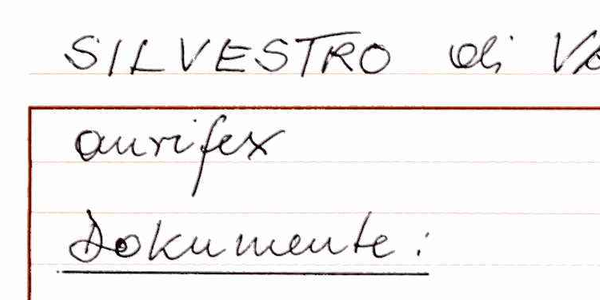 SILVESTRO di
aurifex
Dokumente: